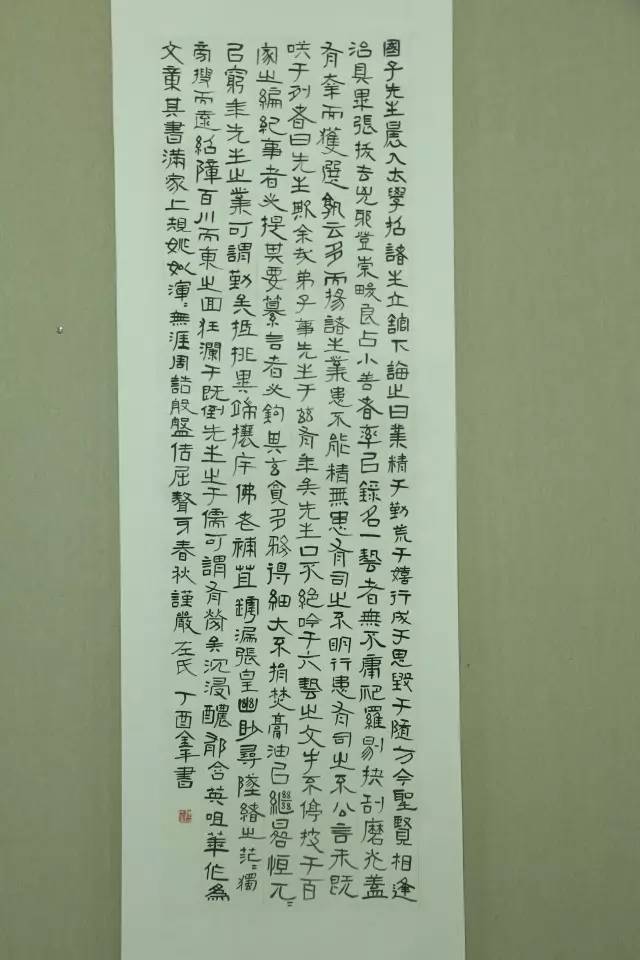 國子先生晨入太學招諸生立館下誨之曰業精于勤荒于嬉行成于思毀于隨方今聖賢相逢
治具畢張拔去兇邪登崇畯良占小善者率已錄名一藝者無不庸爬羅剔抉刮磨光蓋
有幸而獲選孰云多而揚諸生業患不能精無患有司之不明行患有司之不公言未既
哄于列者曰先生欺余哉弟子事先生于茲有年矣先生口不絕吟于六藝之文手不停披于百
家之編紀事者必提其要纂言者必鉤其玄貪多務得細大不捐焚膏油已繼晷恒兀〻
已窮年先生之業可謂勤矣抵排異端攘斥佛老補苴罅漏張皇幽眇尋墜緒之茫〻獨
旁搜而遠紹障百川而東之回狂瀾于既倒先生之于儒可謂有勞矣沉浸醲郁含英咀華作為
文章其書滿家上規姚姒渾〻無涯周誥殷盤佶屈聱牙春秋謹嚴左氏 丁酉書